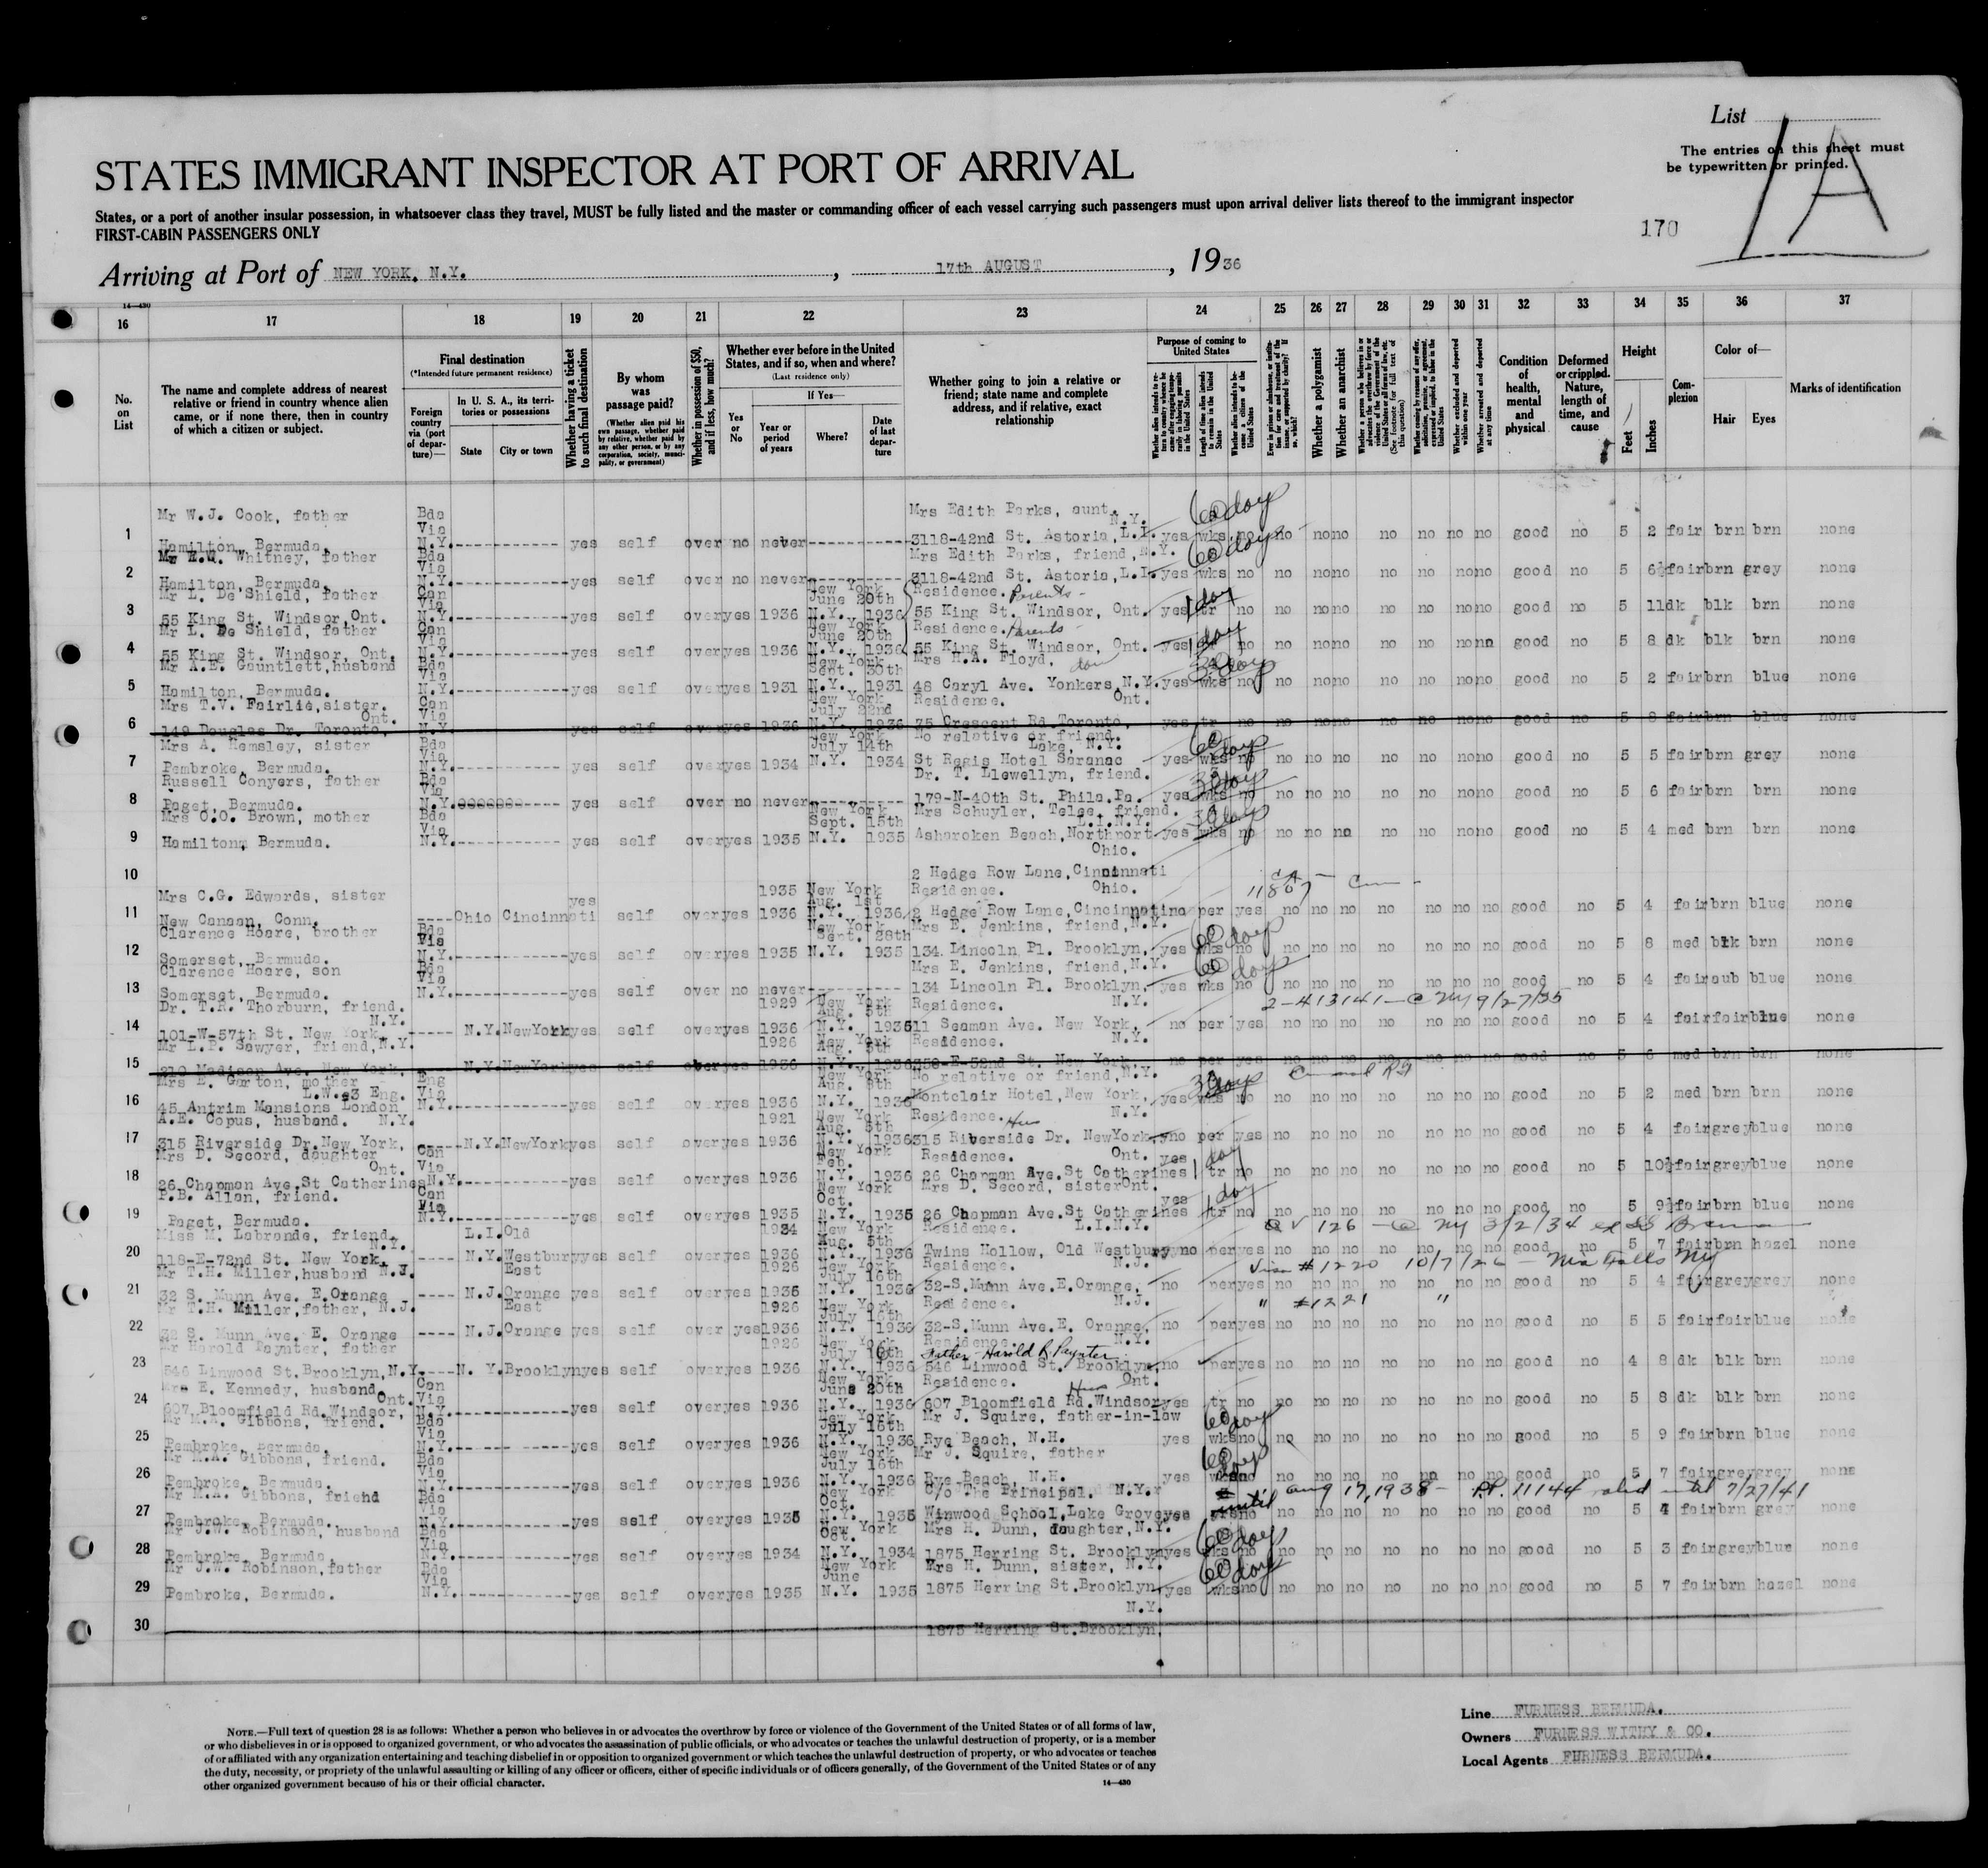 List
The entries on this sheet must
be typewritten or printed.
1A
STATES IMMIGRANT INSPECTOR AT PORT OF ARRIVAL
States, or a port of another insular possession, in whatsoever class they travel, MUST be fully listed and the master or commanding officer of each vessel carrying such passengers must upon arrival deliver lists thereof to the immigrant inspector
FIRST-CABIN PASSENGERS ONLY
170
Arriving at Port of NEW YORK, N.Y. , 17th AUGUST , 1936
14—430
16 17 18 19 20 21 22 23 24 25 26 27 28 29 30 31 32 33 34 35 36 37
No. on List
The name and complete address of nearest relative or friend in country whence alien came, or if none there, then in country of which a citizen or subject.
Final destination
(*Intended future permanent residence)
Foreign country via (port of departure)—
In U. S. A., its territories or possessions
State City or town
Whether having a ticket to such final destination
By whom was passage paid?
(Whether alien paid his own passage, whether paid by relative, whether paid by any other person, or by any corporation, society, municipality, or government)
Whether in possession of $50, and if less, how much?
Whether ever before in the United States, and if so, when and where?
(Last residence only)
Yes or No
If Yes—
Year or period of years
Where?
Date of last departure
Whether going to join a relative or friend; state name and complete address, and if relative, exact relationship
Purpose of coming to United States
Length of time alien intends to remain in the United States
Whether alien intends to become a citizen of the United States
Whether a polygamist
Whether an anarchist
(See footnote for full text of this question)
Whether excluded and deported within one year
Whether arrested and deported at any time
Condition of health, mental and physical
Deformed or crippled. Nature, length of time, and cause
Height
Feet Inches
Complexion
Color of—
Hair Eyes
Marks of identification
1 Mr W.J. Cook, father Hamilton, Bermuda. Bda Via N.Y. yes self over no never Mrs Edith Parks, aunt. N.Y. 3118-42nd St. Astoria, L.I. yes wks no 60 day no no no no no no no good no 5 2 fair brn brn none
2 Mr H.W. Whitney, father Hamilton, Bermuda. Bda Via N.Y. yes self over no never Mrs Edith Parks, friend, N.Y. 3118-42nd St. Astoria, L.I. yes wks no 60 day no no no no no no no good no 5 6½ fair brn grey none
3 Mr L. De Shield, father 55 King St. Windsor, Ont. Can Via N.Y. yes self over yes 1936 New York N.Y. June 20th 1936 Residence. Parents - 55 King St. Windsor, Ont. yes tr no 1 day no no no no no no no good no 5 11 dk blk brn none
4 Mr L. De Shield, father 55 King St. Windsor, Ont. Can Via N.Y. yes self over yes 1936 New York N.Y. June 20th 1936 Residence. Parents - 55 King St. Windsor, Ont. yes no 1 day no no no no no no no good no 5 8 dk blk brn none
5 Mr A.E. Gauntlett, husband Hamilton, Bermuda. Bda Via N.Y. yes self over yes 1931 New York N.Y. Sept. 30th 1931 Mrs H.A. Floyd, 48 Caryl Ave. Yonkers, N.Y. yes wks no 30 day no no no no no no no good no 5 2 fair brn blue none
6 Mrs T.V. Fairlie, sister. 149 Douglas Dr. Toronto, Ont. Can Via N.Y. yes self over yes 1936 New York N.Y. July 22nd 1936 Residence. 75 Crescent Rd Toronto, Ont. yes tr no no no no no no no no good no 5 8 fair brn blue none
7 Mrs A. Hemsley, sister Pembroke, Bermuda. Bda Via N.Y. yes self over yes 1934 New York N.Y. July 14th 1934 No relative or friend. St Regis Hotel Saranac Lake, N.Y. yes wks no 60 day no no no no no no no good no 5 5 fair brn grey none
8 Russell Conyers, father Paget, Bermuda. Bda Via N.Y. yes self over no never Dr. T. Llewellyn, friend. 179-N-40th St. Phila. Pa. yes wks no 30 day no no no no no no no good no 5 6 fair brn brn none
9 Mrs O.O. Brown, mother Hamilton, Bermuda. Bda Via N.Y. yes self over yes 1935 New York N.Y. Sept. 15th 1935 Mrs Schuyler, Telee, friend. Asharoken Beach, Northport L.I.N.Y. yes wks no 30 day no no no no no no no good no 5 4 med brn brn none
10 2 Hedge Row Lane, Cincinnati Ohio.
11 Mrs C.G. Edwards, sister New Canaan, Conn. Ohio Cincinnati yes self over yes 1935 1936 New York N.Y. Aug. 1st 1936 Residence. 2 Hedge Row Lane, Cincinnati Ohio. no per yes 11867 no no no no no no no good no 5 4 fair brn blue none
12 Clarence Hoare, brother Somerset, Bermuda. Bda Via N.Y. yes self over yes 1935 New York N.Y. Sept. 28th 1935 Mrs E. Jenkins, friend, N.Y. 134 Lincoln Pl. Brooklyn, yes wks no 60 day no no no no no no no good no 5 8 med blk brn none
13 Clarence Hoare, son Somerset, Bermuda. Bda Via N.Y. yes self over no never Mrs E. Jenkins, friend, N.Y. 134 Lincoln Pl. Brooklyn, yes wks no 60 day no no no no no no no good no 5 4 fair aub blue none
14 Dr. T.R. Thorburn, friend. 101-W-57th St. New York, N.Y. N.Y. New York yes self over yes 1929 1936 New York N.Y. Aug. 5th 1936 Residence. 611 Seaman Ave. New York, N.Y. no per yes 2-413141 - NY 9/27/35 no no no no no no no good no 5 4 fair fair blue none
15 Mr L.B. Sawyer, friend, N.Y. 210 Madison Ave. New York, N.Y. New York yes self over yes 1926 1936 New York N.Y. Aug. 5th 1936 Residence. 350-E-52nd St. New York N.Y. no per yes no no no no no no no good no 5 6 med brn brn none
16 Mrs E. Garton, mother 45 Antrim Mansions London L.W.3 Eng. Eng Via N.Y. yes self over yes 1936 New York N.Y. Aug. 8th 1936 No relative or friend, N.Y. Montclair Hotel, New York, yes wks 30 days no no no no no no no good no 5 2 med brn brn none
17 A.E. Copus, husband. N.Y. 315 Riverside Dr. New York, N.Y. New York yes self over yes 1921 1936 New York N.Y. Aug. 5th 1936 Residence. Hus 315 Riverside Dr. New York N.Y. no per yes no no no no no no no good no 5 4 fair grey blue none
18 Mrs D. Secord, daughter 26 Chapman Ave. St Catherines Ont. Can Via N.Y. yes self over yes 1936 New York N.Y. Feb. 1936 Residence. 26 Chapman Ave. St Catherines Ont. yes tr no 1 day no no no no no no no good no 5 10½ fair grey blue none
19 P.B. Allan, friend. Paget, Bermuda. Can Via N.Y. yes self over yes 1935 New York N.Y. Oct. 1935 Mrs D. Secord, sister Ont. 26 Chapman Ave. St Catherines yes tr no 1 day no no no no no no no good no 5 9½ fair brn blue none
20 Miss M. Labrande, friend, 118-E-72nd St. New York, N.Y. L.I. N.Y. Old Westbury yes self over yes 1934 1936 New York N.Y. Aug. 5th 1936 Residence. L.I.N.Y. Twins Hollow, Old Westbury no per yes QV 126 - NY 3/2/34 ex SS Bremen no no no no no no no good no 5 7 fair brn hazel none
21 Mr T.H. Miller, husband N.J. 32 S. Munn Ave. E. Orange N.J. East Orange yes self over yes 1926 1936 New York N.Y. July 16th 1936 Residence. N.J. 32-S. Munn Ave. E. Orange, no per yes Visa #1220 10/7/26 - Nia Falls NY no no no no no no no good no 5 4 fair grey grey none
22 Mr T.H. Miller, father, N.J. 32 S. Munn Ave. E. Orange N.J. East Orange yes self over yes 1926 1936 New York, N.Y. July 16th 1936 Residence. N.J. 32-S. Munn Ave. E. Orange, no per yes " #1221 " no no no no no no no good no 5 5 fair fair blue none
23 Mr Harold Paynter, father 546 Linwood St. Brooklyn, N.Y. N.Y. Brooklyn yes self over yes 1926 1936 New York N.Y. July 16th 1936 Residence. N.Y. Father Harold R Paynter 546 Linwood St. Brooklyn, no per yes no no no no no no no good no 4 8 dk blk brn none
24 Mrs E. Kennedy, husband, 607 Bloomfield Rd. Windsor, Ont. Can Via N.Y. yes self over yes 1936 New York, N.Y. June 20th 1936 Residence. Hus Ont. 607 Bloomfield Rd. Windsor yes tr no no no no no no no no good no 5 8 dk blk brn none
25 Mr M.A. Gibbons, friend. Pembroke, Bermuda. Bda Via N.Y. yes self over yes 1936 New York N.Y. July 16th 1936 Mr J. Squire, father-in-law Rye Beach, N.H. yes wks no 60 day no no no no no no no good no 5 9 fair brn blue none
26 Mr M.A. Gibbons, friend. Pembroke, Bermuda. Bda Via N.Y. yes self over yes 1936 New York N.Y. July 16th 1936 Mr J. Squire, father Rye Beach, N.H. yes wks no 60 day no no no no no no no good no 5 7 fair grey grey none
27 Mr M.A. Gibbons, friend Pembroke, Bermuda. Bda Via N.Y. yes self over yes 1935 New York N.Y. Oct. 1935 C/o The Principal. N.Y. Winwood School, Lake Grove yes no until Aug 17, 1938 - P.P. 11144 valid until 7/27/41 no no no no no no no good no 5 4 fair brn grey none
28 Mr J.W. Robinson, husband Pembroke, Bermuda. Bda Via N.Y. yes self over yes 1934 New York N.Y. Oct. 1934 Mrs H. Dunn, daughter, N.Y. 1875 Herring St. Brooklyn yes wks no 60 day no no no no no no no good no 5 3 fair grey blue none
29 Mr J.W. Robinson, father Pembroke, Bermuda. Bda Via N.Y. yes self over yes 1935 New York N.Y. June 1935 Mrs H. Dunn, sister, N.Y. 1875 Herring St. Brooklyn, yes wks no 60 day no no no no no no no good no 5 7 fair brn hazel none
30 N.Y. 1875 Herring St. Brooklyn,
NOTE.—Full text of question 28 is as follows: Whether a person who believes in or advocates the overthrow by force or violence of the Government of the United States or of all forms of law,
or who disbelieves in or is opposed to organized government, or who advocates the assassination of public officials, or who advocates or teaches the unlawful destruction of property, or is a member
of or affiliated with any organization entertaining and teaching disbelief in or opposition to organized government or which teaches the unlawful destruction of property, or who advocates or teaches
the duty, necessity, or propriety of the unlawful assaulting or killing of any officer or officers, either of specific individuals or of officers generally, of the Government of the United States or of any
other organized government because of his or their official character.
14—430
Line FURNESS BERMUDA.
Owners FURNESS WITHY & CO.
Local Agents FURNESS BERMUDA.